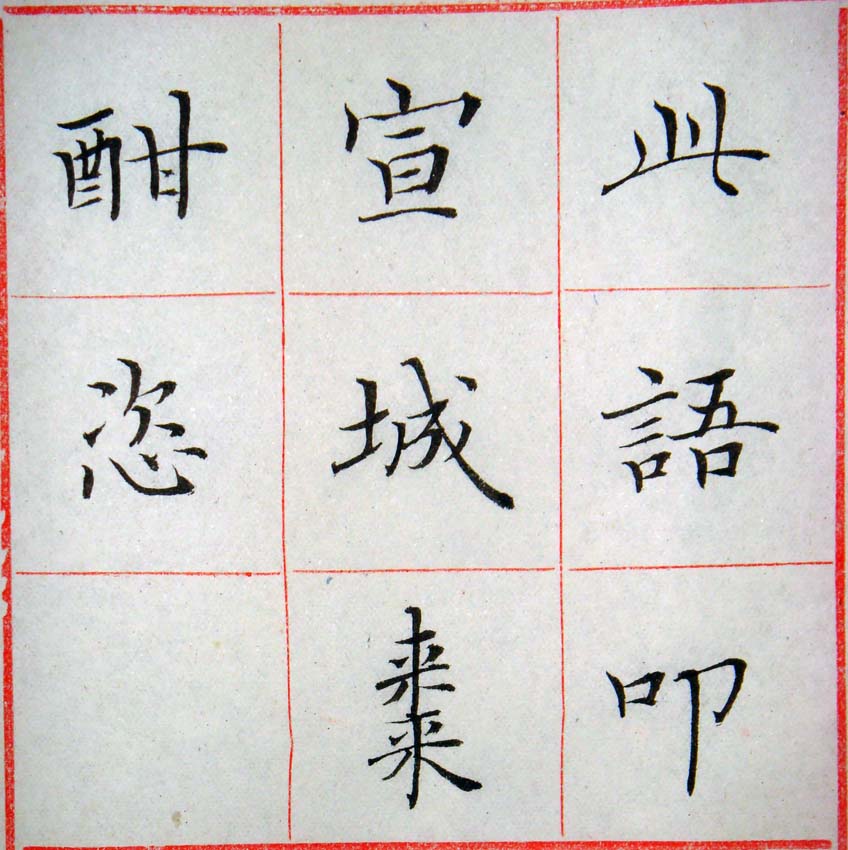 此語叩
宣城棗
酣恣